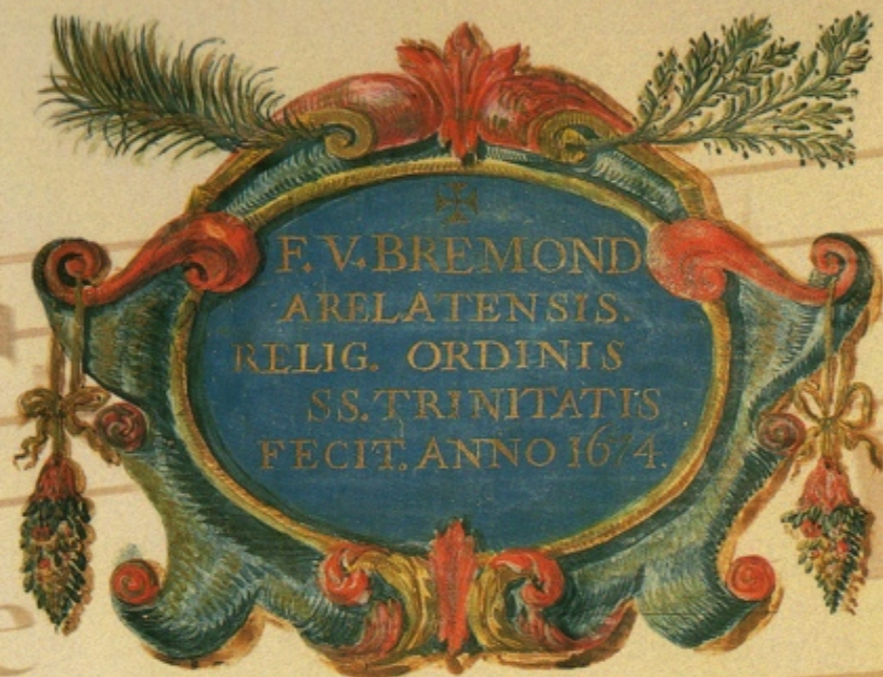 F. V. BREMOND
ARELATENSIS.
RELIG. ORDINIS
SS. TRINITATIS
FECIT. ANNO 1674.